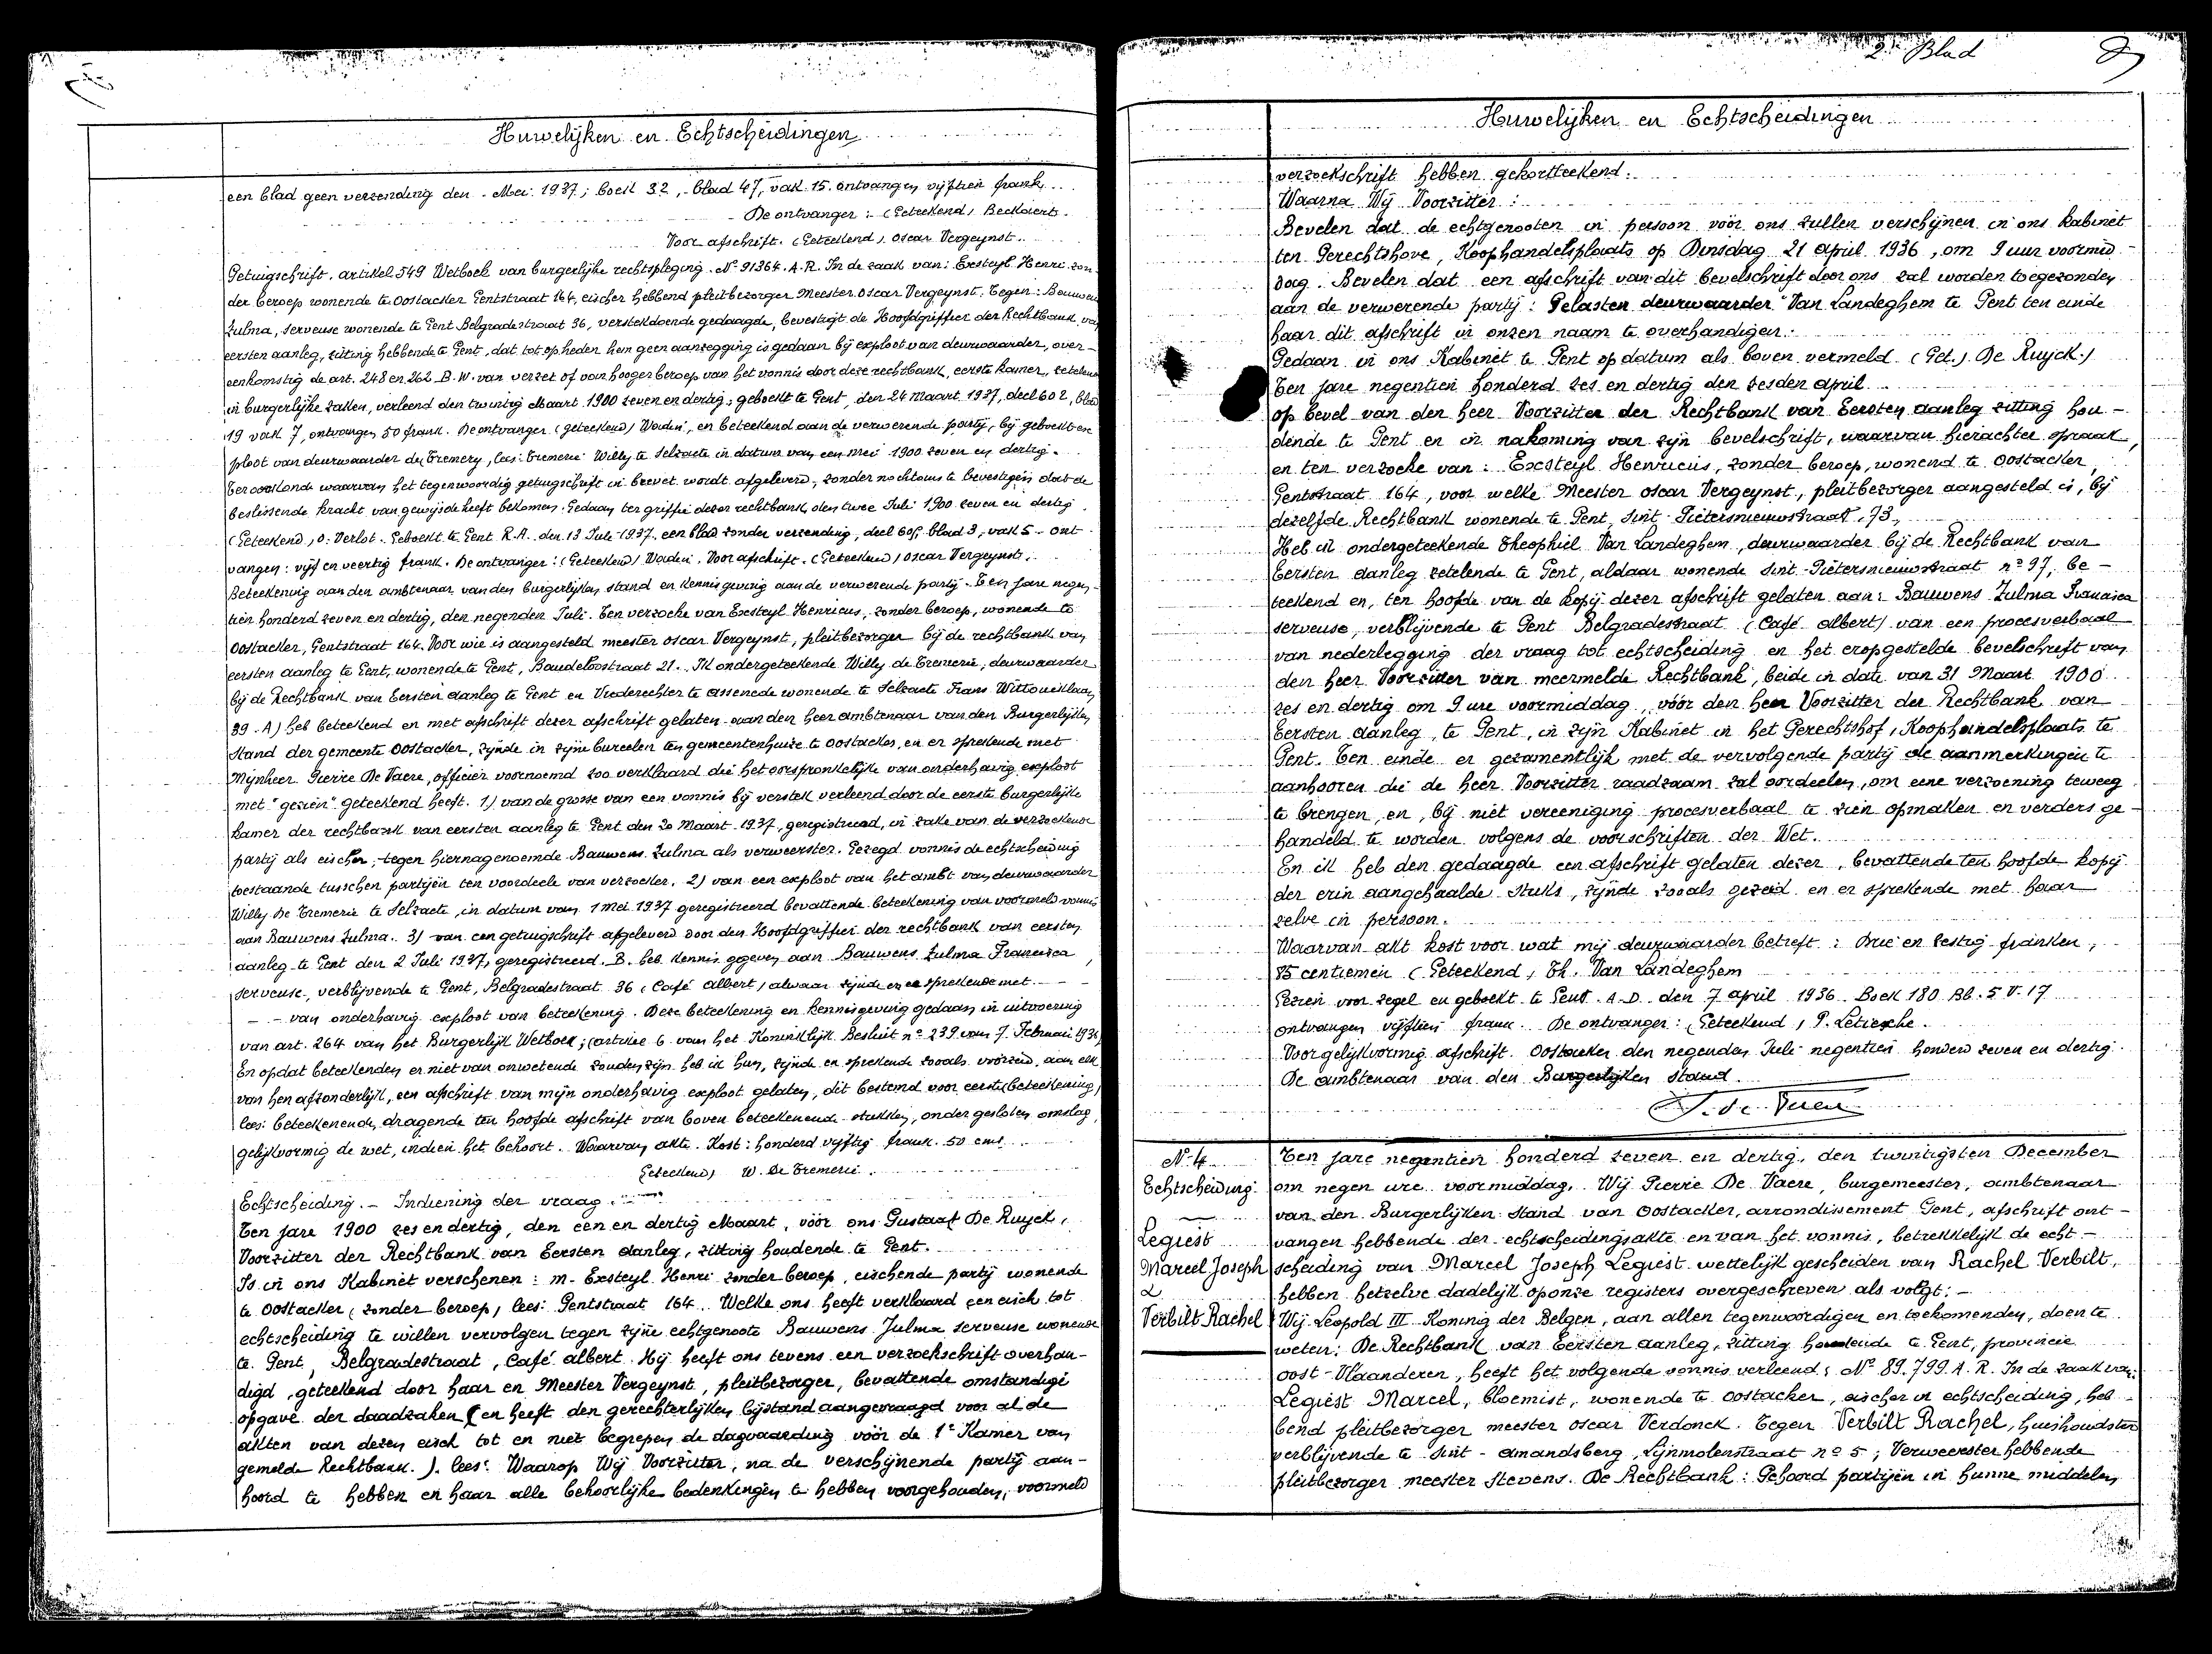 Huwelijken en Echtscheidingen
een blad geen verzending den - Mei 1937; boek 32, blad 47, vak 15. ontvangen vijftien frank
De ontvanger: (Geteekend) Beckaert.
Voor afschrift. (Geteekend) Oscar Vergeynst.
Getuigschrift. artikel 549 Wetboek van burgerlijke rechtspleging. No 91364. A.R. In de zaak van: Excsteyl Henri zon-
der beroep wonende te Oostacker Gentstraat 164, eischer hebbend pleitbezorger Meester Oscar Vergeynst. Tegen: Bauwens
Zulma, serveuse wonende te Gent Belgradestraat 36, verstekdoende gedaagde, bevestigt de Hoofdgriffier der Rechtbank van
eersten aanleg, zitting hebbende te Gent, dat tot op heden hem geen aanzegging is gedaan bij exploot van deurwaarder, over-
eenkomstig de art. 248 en 262 B.W. van verzet of van hooger beroep van het vonnis door deze rechtbank, eerste kamer, zetelend
in burgerlijke zaken, verleend den twintig Maart 1900 zeven en dertig; geboekt te Gent, den 24 Maart 1937, deel 602, blad
19 vak 7, ontvangen 50 frank. De ontvanger (geteekend) Wadin, en beteekend aan de verwerende partij, bij geboekt ex-
ploot van deurwaarder de Tremery, lees: Tremerie Willy te Selzaete in datum van een mei 1900 zeven en dertig.
Ter oorkonde waarvan het tegenwoordig getuigschrift in brevet wordt afgeleverd, zonder nochtans te bevestigen dat de
beslissende kracht van gewijsde heeft bekomen. Gedaan ter griffie dezer rechtbank, den twee Juli 1900 zeven en dertig.
(Geteekend) O. Verlot. Geboekt te Gent R.A. den 13 Juli 1937. een blad zonder verzending, deel 605, blad 3, vak 5 - ont
vangen: vijf en veertig frank. De ontvanger: (Geteekend) Wadin. Voor afschrift. (Geteekend) Oscar Vergeynst.
Beteekening aan den ambtenaar van den burgerlijken stand en kennisgeving aan de verwerende partij. Ten jare negen-
tien honderd zeven en dertig, den negenden Juli. Ten verzoeke van Excsteyl Henricus, zonder beroep, wonende te
Oostacker, Gentstraat 164. Voor wie is aangesteld meester Oscar Vergeynst, pleitbezorger bij de rechtbank van
eersten aanleg te Gent, wonende te Gent, Baudeloostraat 21. Ik ondergeteekende Willy de Tremerie, deurwaarder
bij de Rechtbank van Eersten aanleg te Gent en Vrederechter te Assenede wonende te Selzaete Frans Wittoucklaan
39. A) heb beteekend en met afschrift dezer afschrift gelaten aan den heer ambtenaar van den Burgerlijken
Stand der gemeente Oostacker, zijnde in zijne bureelen ten gemeentenhuize te Oostacker, en er sprekende met
Mijnheer Pierre De Vaere, officier voornoemd zoo verklaard die het oorspronkelijke van onderhavig exploot
met "gezien" geteekend heeft. 1) van de grosse van een vonnis bij verstek verleend door de eerste burgerlijke
kamer der rechtbank van eersten aanleg te Gent den 20 Maart 1937, geregistreerd, in zake van de verzoekende
partij als eischer, tegen hiernagenoemde Bauwens Zulma als verweerster. Gezegd vonnis de echtscheiding
toestaande tusschen partijen ten voordeele van verzoeker. 2) van een exploot van het ambt van deurwaarder
Willy De Tremerie te Selzaete, in datum van 1 Mei 1937 geregistreerd bevattende beteekening van voormeld vonnis
aan Bauwens Zulma. 3) van een getuigschrift afgeleverd door den Hoofdgriffier der rechtbank van eersten
aanleg te Gent den 2 Juli 1937, geregistreerd. B. heb kennis gegeven aan Bauwens Zulma Francisca,
serveuse, verblijvende te Gent, Belgradestraat 36 (Café Albert) alwaar zijnde en er sprekende met - -
- - van onderhavig exploot van beteekening. Deze beteekening en kennisgeving gedaan in uitvoering
van art. 264 van het Burgerlijk Wetboek; (artikel 6 van het Koninklijk Besluit no 239 van 7 Februari 1936)
En opdat beteekenden er niet van onwetende zouden zijn heb ik hun, zijnde en sprekende zooals voorzeid, aan elk
van hen afzonderlijk, een afschrift van mijn onderhavig exploot gelaten, dit bestemd voor eerste (beteekening)
lees: beteekenende, dragende ten hoofde afschrift van boven beteekenende stukken, onder gesloten omslag,
gelijkvormig de wet, indien het behoort. Waarvan akte. Kost: honderd vijftig frank. 50 cms
Geteekend) W. De Tremerie.
Echtscheiding. - Indiening der vraag.
Ten jare 1900 zes en dertig, den een en dertig Maart, vóór ons Gustaaf De Ruyck,
Voorzitter der Rechtbank van Eersten aanleg, zitting houdende te Gent.
Is in ons Kabinet verschenen: m. Excsteyl Henri zonder beroep, eischende partij wonende
te Oostacker (zonder beroep) lees: Gentstraat 164. Welke ons heeft verklaard een eisch tot
echtscheiding te willen vervolgen tegen zijne echtgenoote Bauwens Zulma serveuse wonende
te Gent, Belgradestraat, Café Albert. Hij heeft ons tevens een verzoekschrift overhan-
digd, geteekend door haar en Meester Vergeynst, pleitbezorger, bevattende omstandige
opgave der daadzaken (en heeft den gerechterlijken bijstand aangevraagd voor al de
akten van dezen eisch tot en niet begrepen de dagvaarding vóór de 1e Kamer van
gemelde Rechtbank.). lees: Waarop Wij Voorzitter, na de verschijnende partij aan-
hoord te hebben en haar alle behoorlijke bedenkingen te hebben voorgehouden, voormeld
2e Blad
Huwelijken en Echtscheidingen
verzoekschrift hebben gekortteekend.
Waarna Wij Voorzitter:
Bevelen dat de echtgenooten in persoon vóór ons zullen verschijnen in ons kabinet
ten Gerechtshove, Koophandelsplaats op Dinsdag 21 April 1936, om 9 uur voormid-
dag. Bevelen dat een afschrift van dit bevelschrift door ons zal worden toegezonden
aan de verwerende partij: Gelasten deurwaarder Van Landeghem te Gent ten einde
haar dit afschrift in onzen naam te overhandigen.
Gedaan in ons Kabinet te Gent op datum als boven vermeld. (Get.) De Ruyck.)
Ten jare negentien honderd zes en dertig den zesden April
op bevel van den heer Voorzitter der Rechtbank van Eersten aanleg zitting hou-
dende te Gent en in nakoming van zijn bevelschrift, waarvan hierachter spraak,
en ten verzoeke van: Excsteyl Henricus, zonder beroep, wonend te Oostacker,
Gentstraat 164, voor welke Meester Oscar Vergeynst, pleitbezorger aangesteld is, bij
dezelfde Rechtbank wonende te Gent, Sint-Pietersnieuwstraat, 73,
Heb ik ondergeteekende Theophiel Van Landeghem, deurwaarder bij de Rechtbank van
Eersten aanleg zetelende te Gent, aldaar wonende Sint-Pietersnieuwstraat no 97, be-
teekend en, ten hoofde van de kopij dezer afschrift gelaten aan: Bauwens Zulma Francisca
serveuse, verblijvende te Gent Belgradestraat (Café Albert) van een procesverbaal
van nederlegging der vraag tot echtscheiding en het eropgestelde bevelschrift van
den heer Voorzitter van meermelde Rechtbank, beide in date van 31 Maart 1900
zes en dertig om 9 ure voormiddag, vóór den heer Voorzitter der Rechtbank van
Eersten aanleg, te Gent, in zijn Kabinet in het Gerechtshof, Koophandelsplaats te
Gent. Ten einde er gezamentlijk met de vervolgende partij de aanmerkingen te
aanhooren die de heer Voorzitter raadzaam zal oordeelen, om eene verzoening teweeg
te brengen, en, bij niet vereeniging procesverbaal te zien opmaken en verders ge-
handeld te worden volgens de voorschriften der Wet.
En ik heb den gedaagde een afschrift gelaten dezer, bevattende ten hoofde kopij
der erin aangehaalde stuks, zijnde zooals gezeid en er sprekende met haar
zelve in persoon.
Waarvan akt kost voor wat mij deurwaarder betreft: Drie en zestig franken,
85 centiemen (Geteekend) Th. Van Landeghem
Gezien voor zegel en geboekt te Gent. A.D. den 7 April 1936. Boek 180 Bl. 5 V. 17
ontvangen vijftien frank. De ontvanger: (Geteekend)
Voor gelijkvormig afschrift. Oostacker den negenden Juli negentien honderd zeven en dertig.
De ambtenaar van den Burgerlijken stand.
No 4
Echtscheiding
Legiest
Marcel Joseph
&
Verbilt Rachel
Ten jare negentien honderd zeven en dertig, den twintigsten December
om negen ure voormiddag. Wij Pierre De Vaere, burgemeester, ambtenaar
van den Burgerlijken Stand van Oostacker, arrondissement Gent, afschrift ont-
vangen hebbende der echtscheidingsakte en van het vonnis, betrekkelijk de echt-
scheiding van Marcel Joseph Legiest wettelijk gescheiden van Rachel Verbilt,
hebben hetzelve dadelijk op onze registers overgeschreven als volgt: -
Wij Leopold III Koning der Belgen, aan allen tegenwoordigen en toekomenden, doen te
weten: De Rechtbank van Eersten aanleg, zitting houdende te Gent, provincie
Oost-Vlaanderen, heeft het volgende vonnis verleend: No 89.799 A.R. In de zaak van:
Legiest Marcel, bloemist, wonende te Oostacker, eischer in echtscheiding, heb-
bend pleitbezorger meester Oscar Verdonck. Tegen Verbilt Rachel, huishoudster
verblijvende te Sint-Amandsberg, Lijnmolenstraat no 5; Verweerster hebbende
pleitbezorger meester Stevens. De Rechtbank: Gehoord partijen in hunne middelen